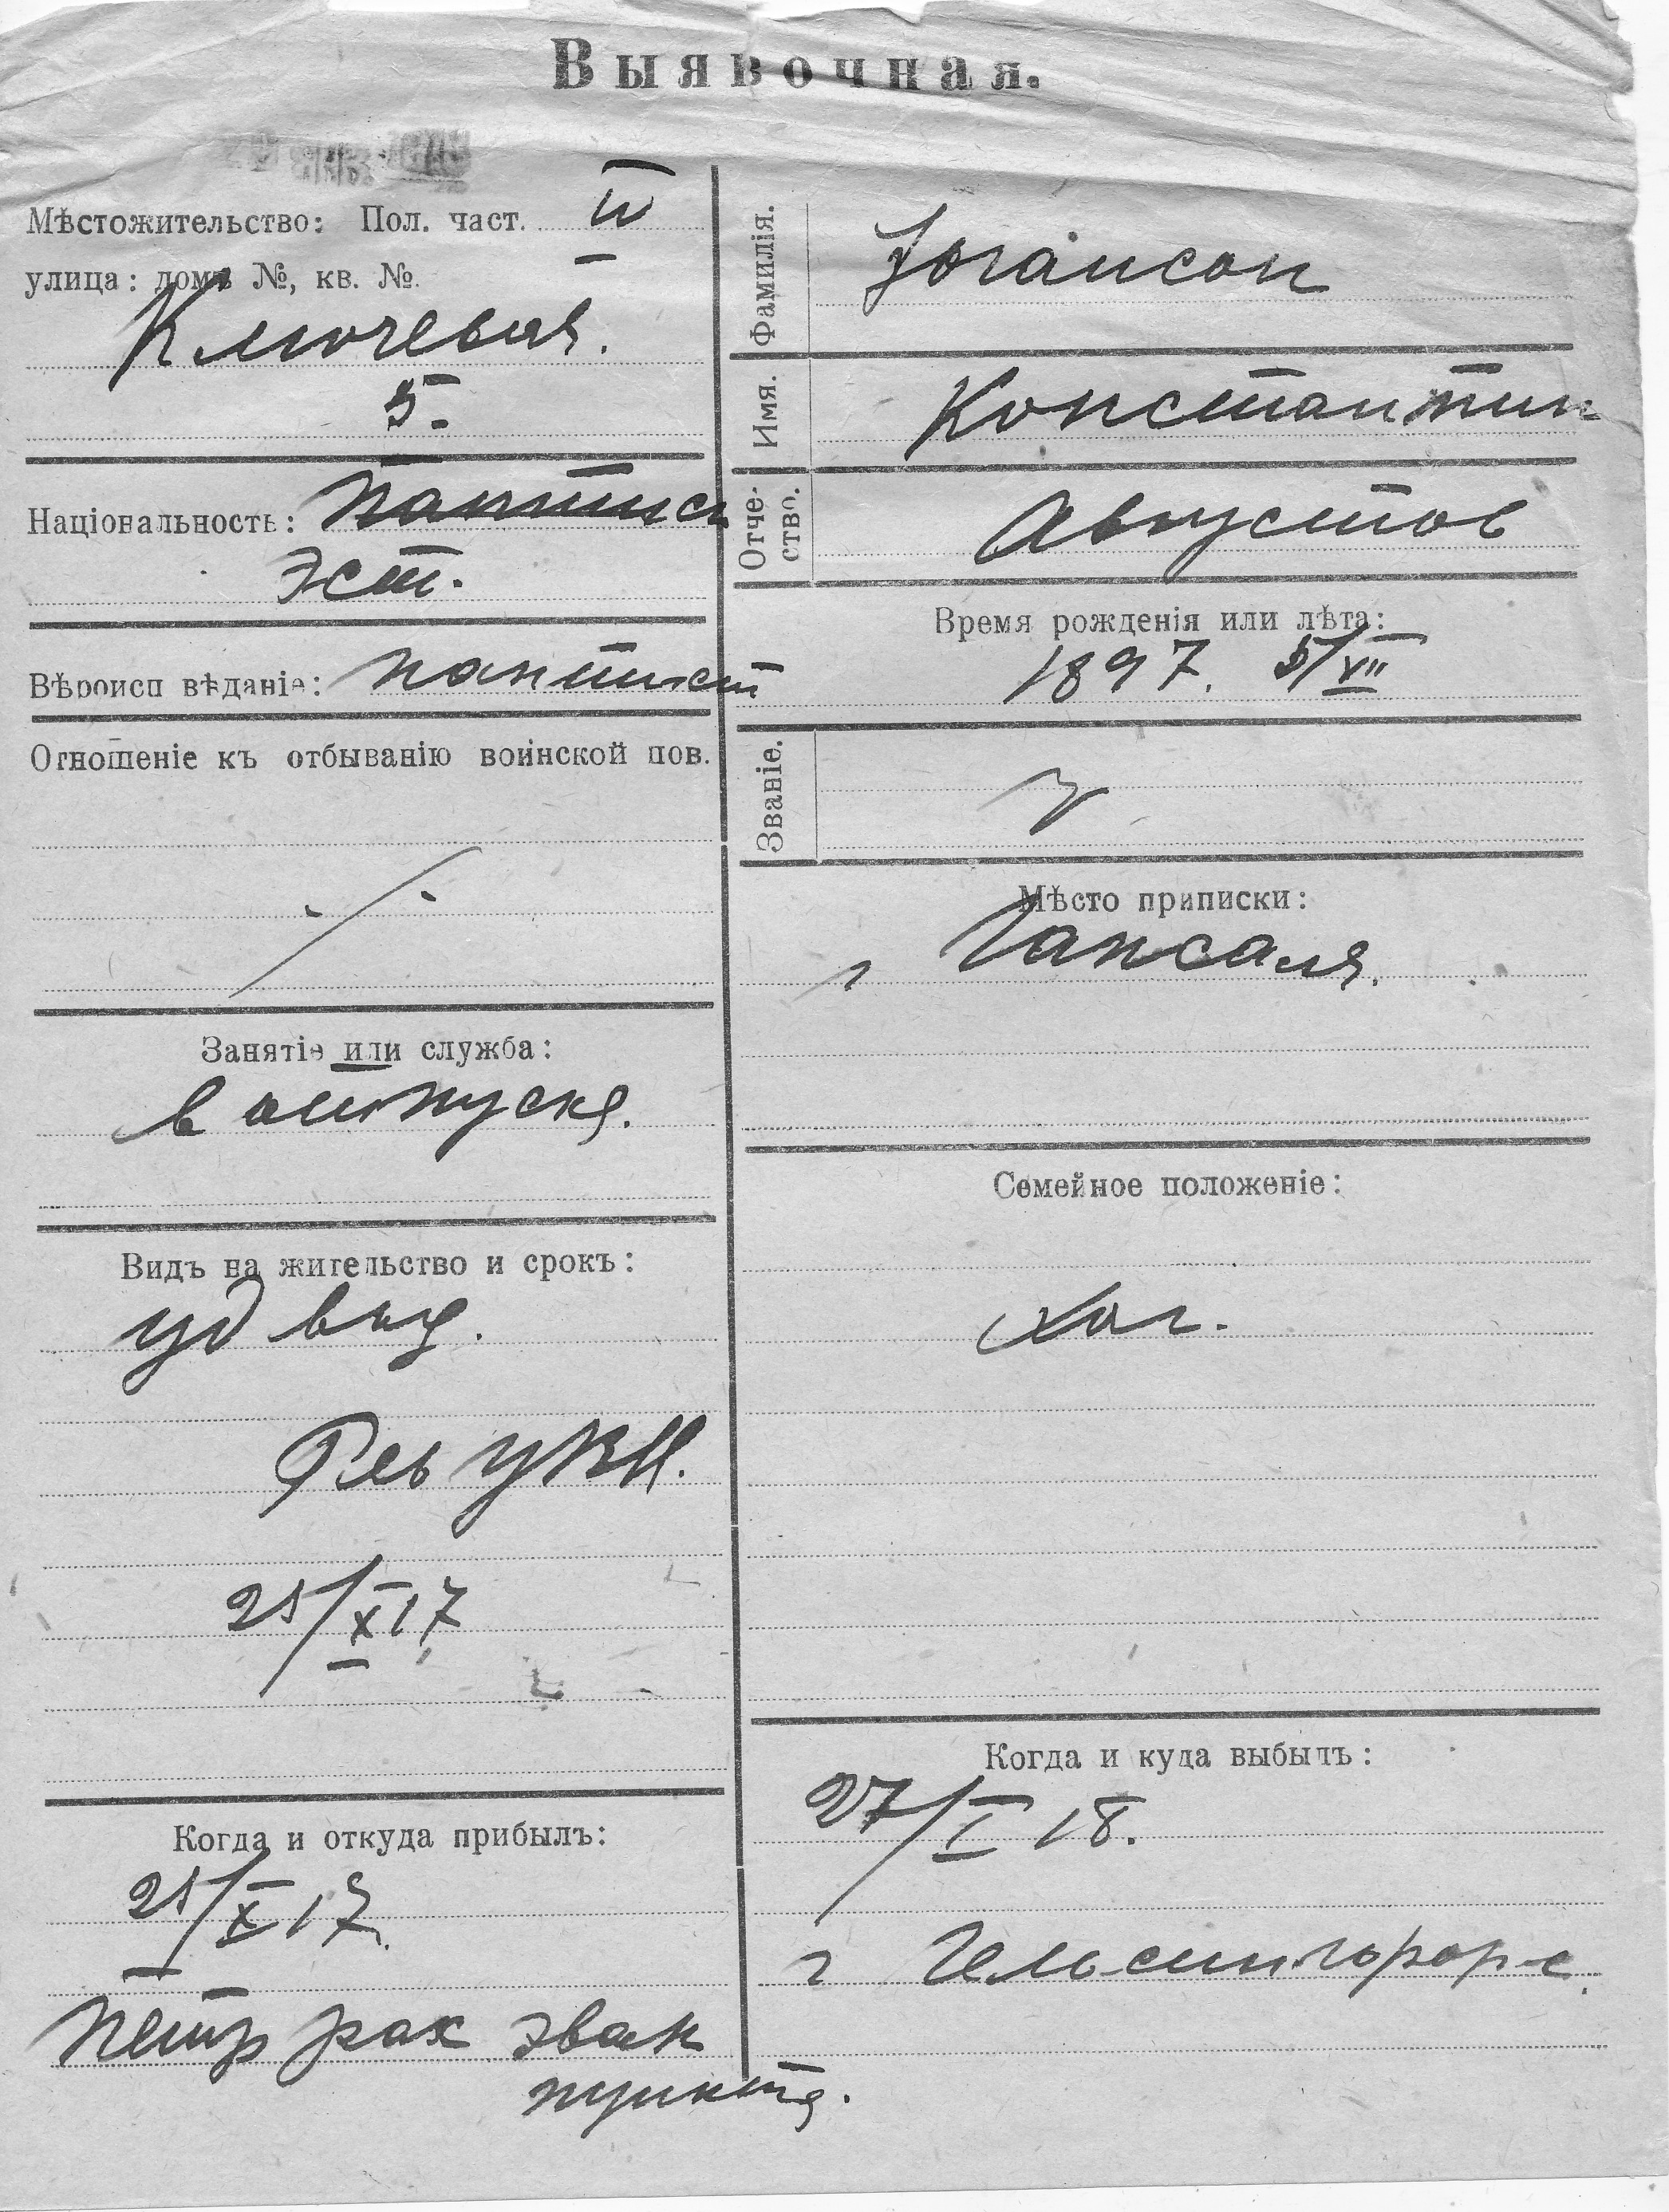 Выявочная.
Мѣстожительство: Пол. част. IV
улица: домъ №, кв. №.
Ключевая.
5.
Національность: Паптист
Эст.
Вѣроисп вѣданіе: паптист
Отношеніе къ отбыванію воинской пов.
Занятіе или служба:
в отпускѣ.
Видъ на жительство и срокъ:
уд выд.
25/X 17
Когда и откуда прибылъ:
25/X 17.
Петр рас эвак
пункта.
Фамилія. Јогансон
Имя. Константин
Отче-
ство. Августов
Время рожденія или лѣта:
1897. 5/VII
Званіе.
Мѣсто приписки:
г Гапсаля.
Семейное положеніе:
хол.
Когда и куда выбылъ:
27/I 18.
г Гельсингфорс.